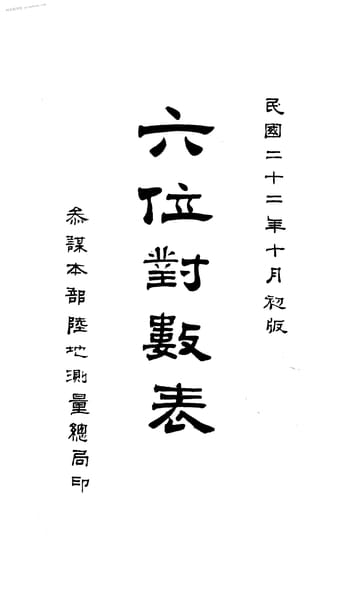 民國二十二年十月初版
六位對數表
參謀本部陸地測量總局印